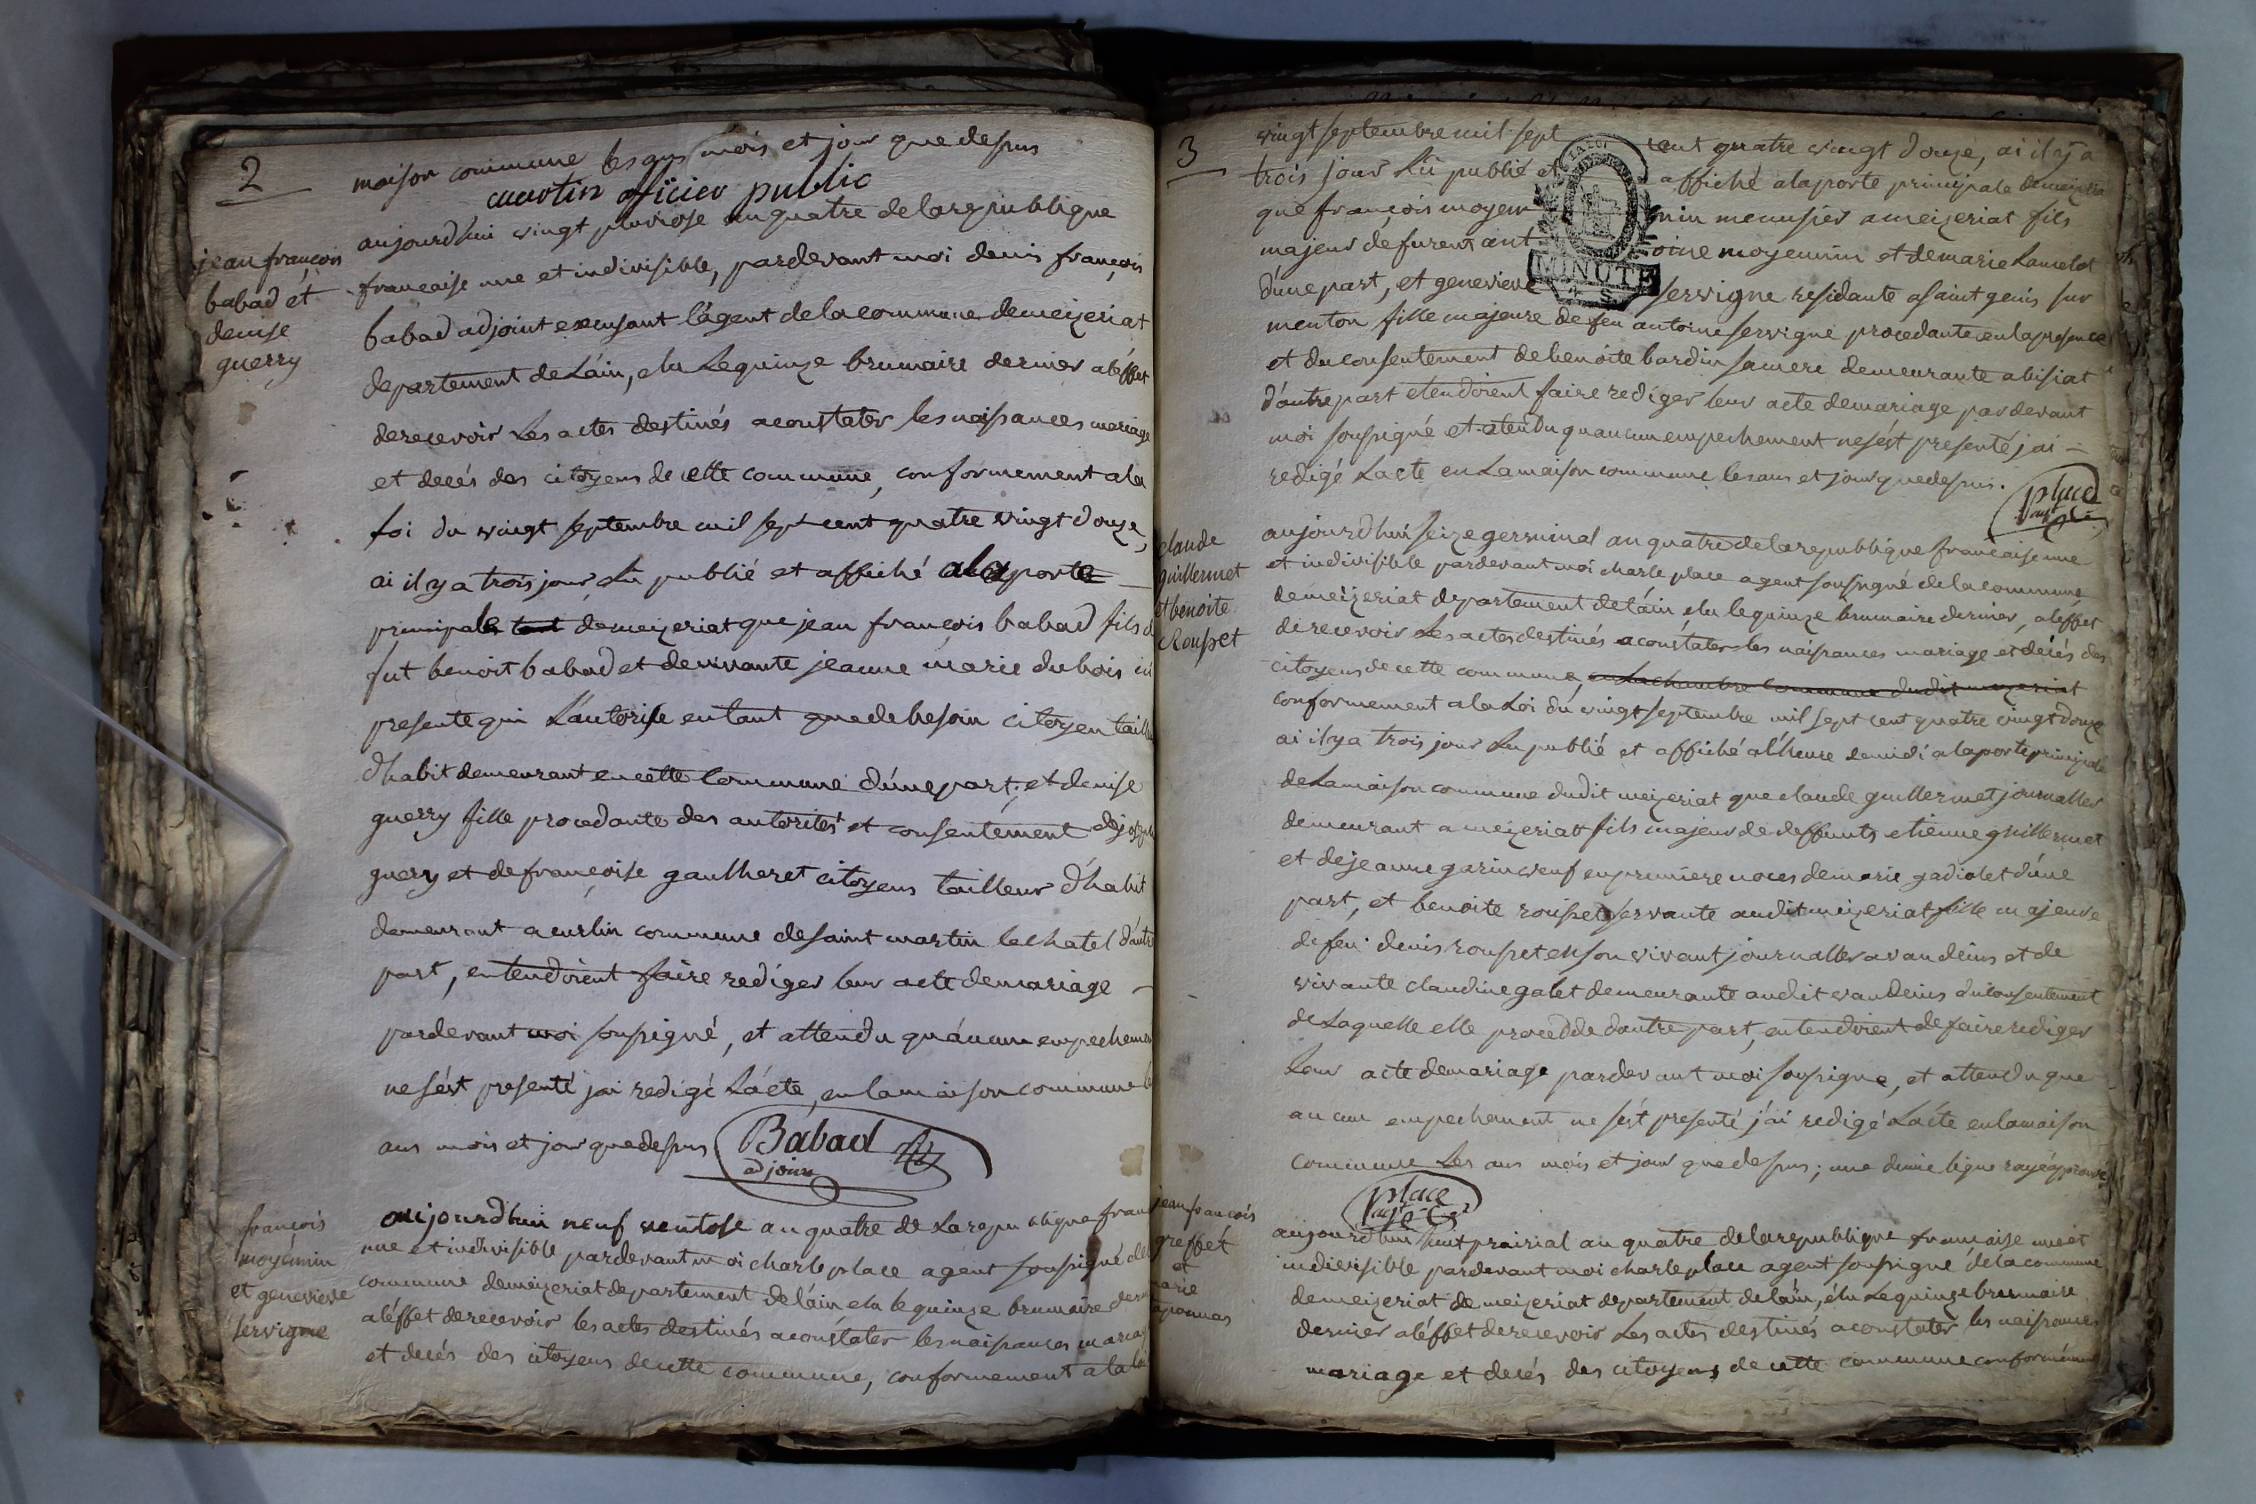 2
maison commune les ans mois et jour que desus
martin officier public
jean françois
babad et
denise
guerry
aujourdhui vingt pluviose an quatre de la republique
francaise une et indivisible, pardevant moi denis françois
babad adjoint excusant l'agent de la commune de meizeriat
departement de Láin, elu Le quinze brumaire dernier a léffet
de recevoir Les actes destinés a constater les naissances mariage
et decés des citoyens de cette commune, conformement a la
loi du vingt septembre mil sept cent quatre vingt douze,
ai il y a trois jour Lu publié et affiché a la porte
principale de meizeriat que jean françois babad fils d
fut benoit babad et de vivante jeanne marie dubois ici
presente qui Láutorise en tant que de besoin citoyen taill
dhabit demeurant en cette Commune dúne part; et denise
guerry fille procedante des autorités et consentement de joseph
guerry et de françoise gaulheret citoyens tailleur dhabit
demeurant a curlin commune de saint martin le chatel d'autre
part, entendoient faire rediger leur acte de mariage
pardevant moi soussigné, et attendu quáucun empechemen
ne sést presenté jai redigé Lácte, en la maison commune l
ans mois et jour que desus
Babad
adjoint
françois
moyemin
et genevieve
servigne
aujourdhui neuf ventose an quatre de La republique fran
une et indivisible pardevant moi charle place agent soussigné de l
commune de meizeriat departement de láin elu le quinze brumaire dern
a léffet de recevoir les actes destinés a constater les naissances maria
et decés des citoyens de cette commune, conformement a la loi
3
vingt septembre mil sept cent quatre vingt douze, ai il y a
trois jour Lu publié et affiché a la porte principale de meizeria
que françois moyemin menusier a meizeriat fils
majeur de furent antoine moyemin et de marie Lamelot
dúne part, et genevieve servigne residante a saint genis sur
menton fille majeure de feu antoine servigne procedante en la presence
et du consentement de benoite bardin sa mere demeurante a bisiat
dáutre part etendoient faire rediger leur acte de mariage par devant
moi soussigné et atendu quaucun empechement ne sést presenté jai
redigé Lacte en La maison commune les ans et jour que desus.
place
agt
MINUTE
claude
guillermet
et benoite
Rouset
aujourdhui seize germinal an quatre de la republique francaise une
et indivisible pardevant moi charle place agent soussigné de la commune
de meizeriat departement de láin elu le quinze brumaire dernier, a léffet
de recevoir Les actes destinés a constater les naissances mariage et decés des
citoyens de cette commune en La chambre Commune dudit mezeriat
conformement a la Loi du vingt septembre mil sept cent quatre vingt douze
ai il y a trois jour Lu publié et affiché a l'heure de midi a la porte principale
de La maison commune dudit meizeriat que claude guillermet journallier
demeurant a meizeriat fils majeur de deffunts etienne guillermet
et de jeanne garin veuf en premiere noces de marie gadiolet dúne
part, et benoite rousset servante audit meizeriat fille majeure
de feu denis rousset en son vivant journallier a vandeins et de
vivante claudine galet demeurante audit vandeins du consentement
de Laquelle elle procedde dautre part, entendoient de faire rediger
Leur acte de mariage pardevant moi soussigne, et attendu que
aucun empechement ne sést presenté jái redigé Lácte en la maison
commune Les ans mois et jour que desus; une demie ligne rayé aprouvé
place
agt
jean francois
greffet
et
marie
aponnas
aujourdhui huit prairial an quatre de la republique francaise une et
indivisible pardevant moi charle place agent soussigné de la commune
de meizeriat de meizeriat departement de láin, élu Le quinze brumaire
dernier a léffet de recevoir Les actes destinés a constater les naissances
mariage et decés des citoyens de cette commune conformément